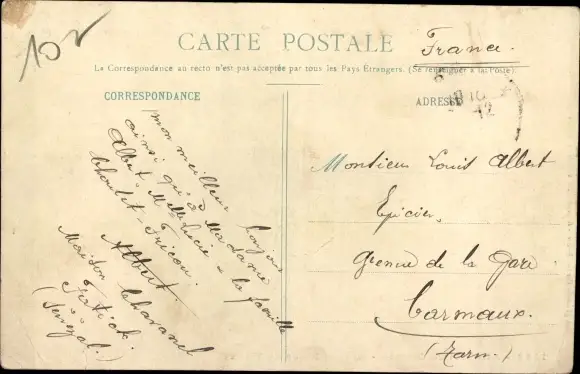 10v
CARTE POSTALE
France.
La Correspondance au recto n'est pas acceptée par tous les Pays Étrangers. (Se renseigner à la Poste).
CORRESPONDANCE
mon meilleur bonjour
ainsi qu'à Madame
Albert Melle Lucie & la famille
Albert
Maison Chavanel
Fatick.
(Sénégal.)
ADRESSE
Monsieur Louis Albert
Epicier.
Avenue de la Gare
Carmaux.
(Tarn.)